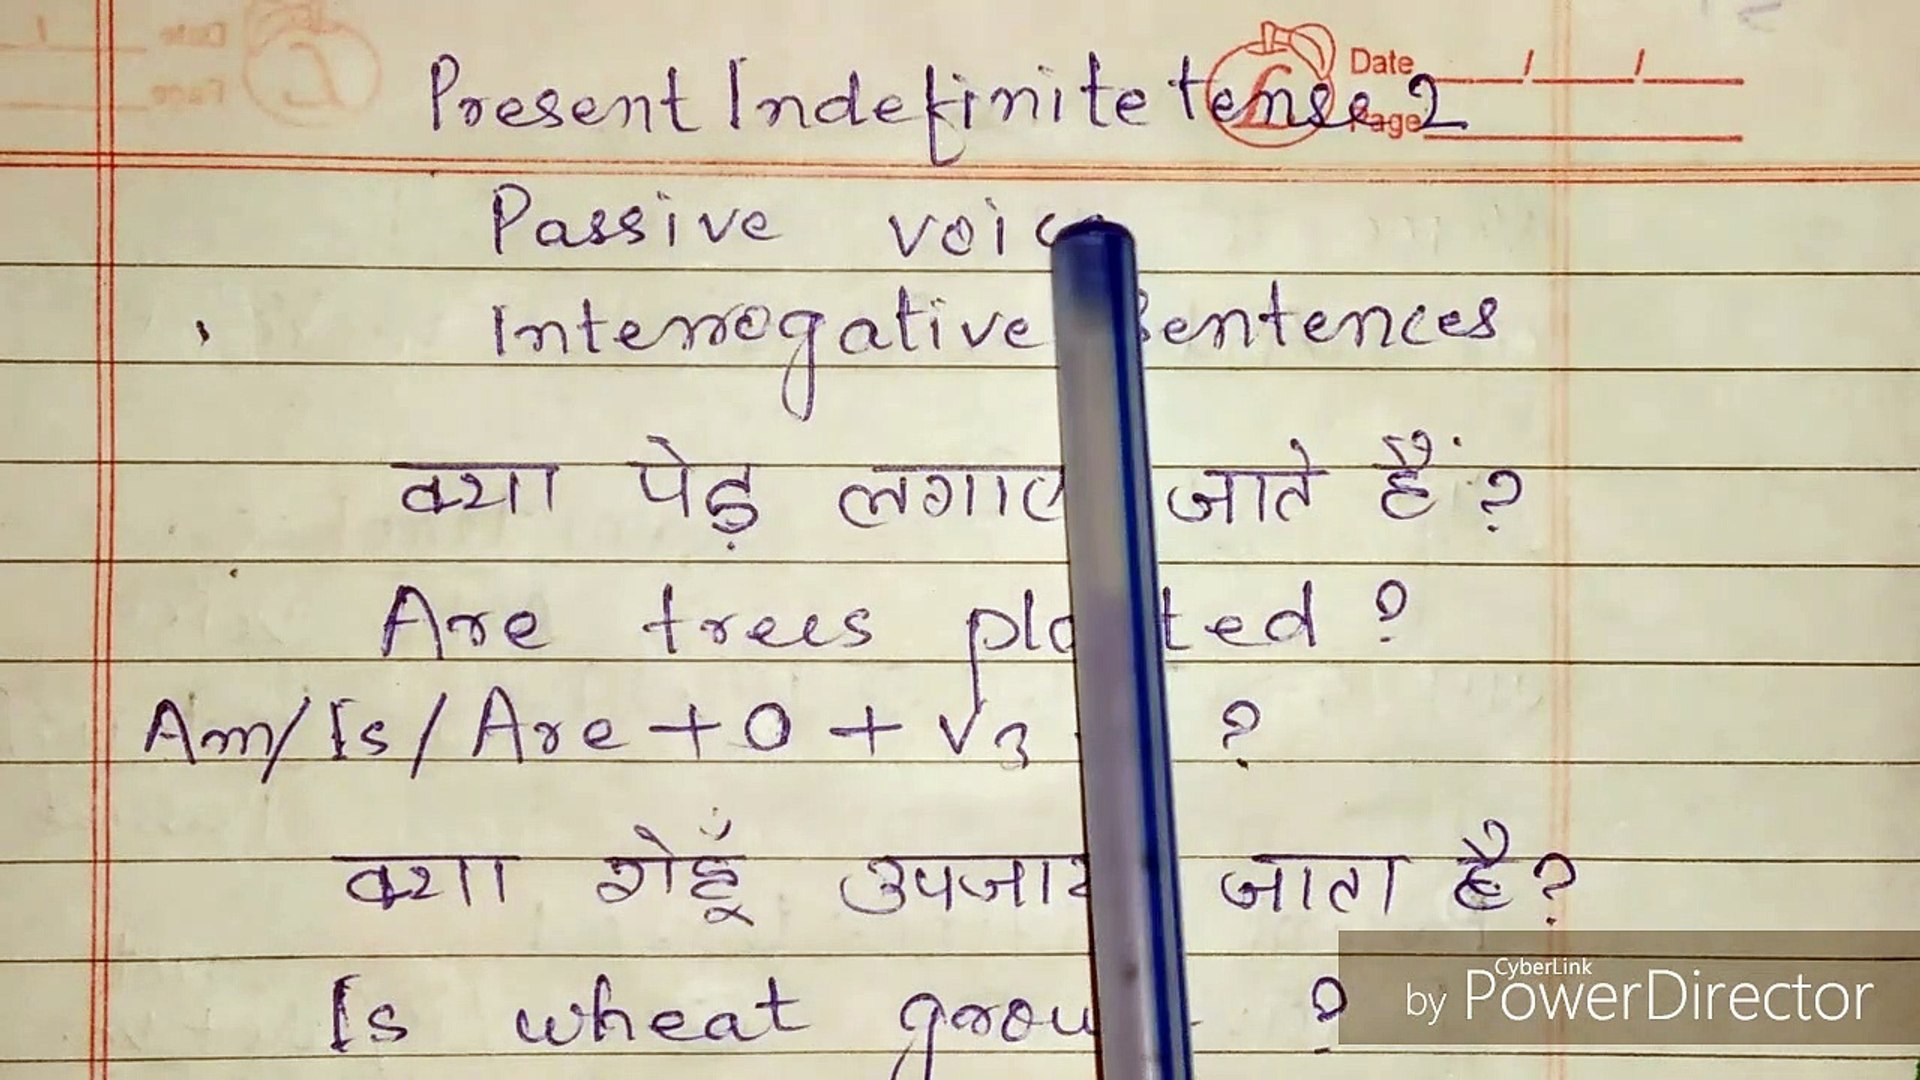 Date / /
Page
Present Indefinite tense 2
Passive voice
Interrogative Sentences
क्या पेड़ लगाए जाते हैं ?
Are trees planted ?
Am/Is/Are + O + V3 ?
क्या गेहूँ उपजाया जाता है ?
Is wheat grown ?
CyberLink
by PowerDirector